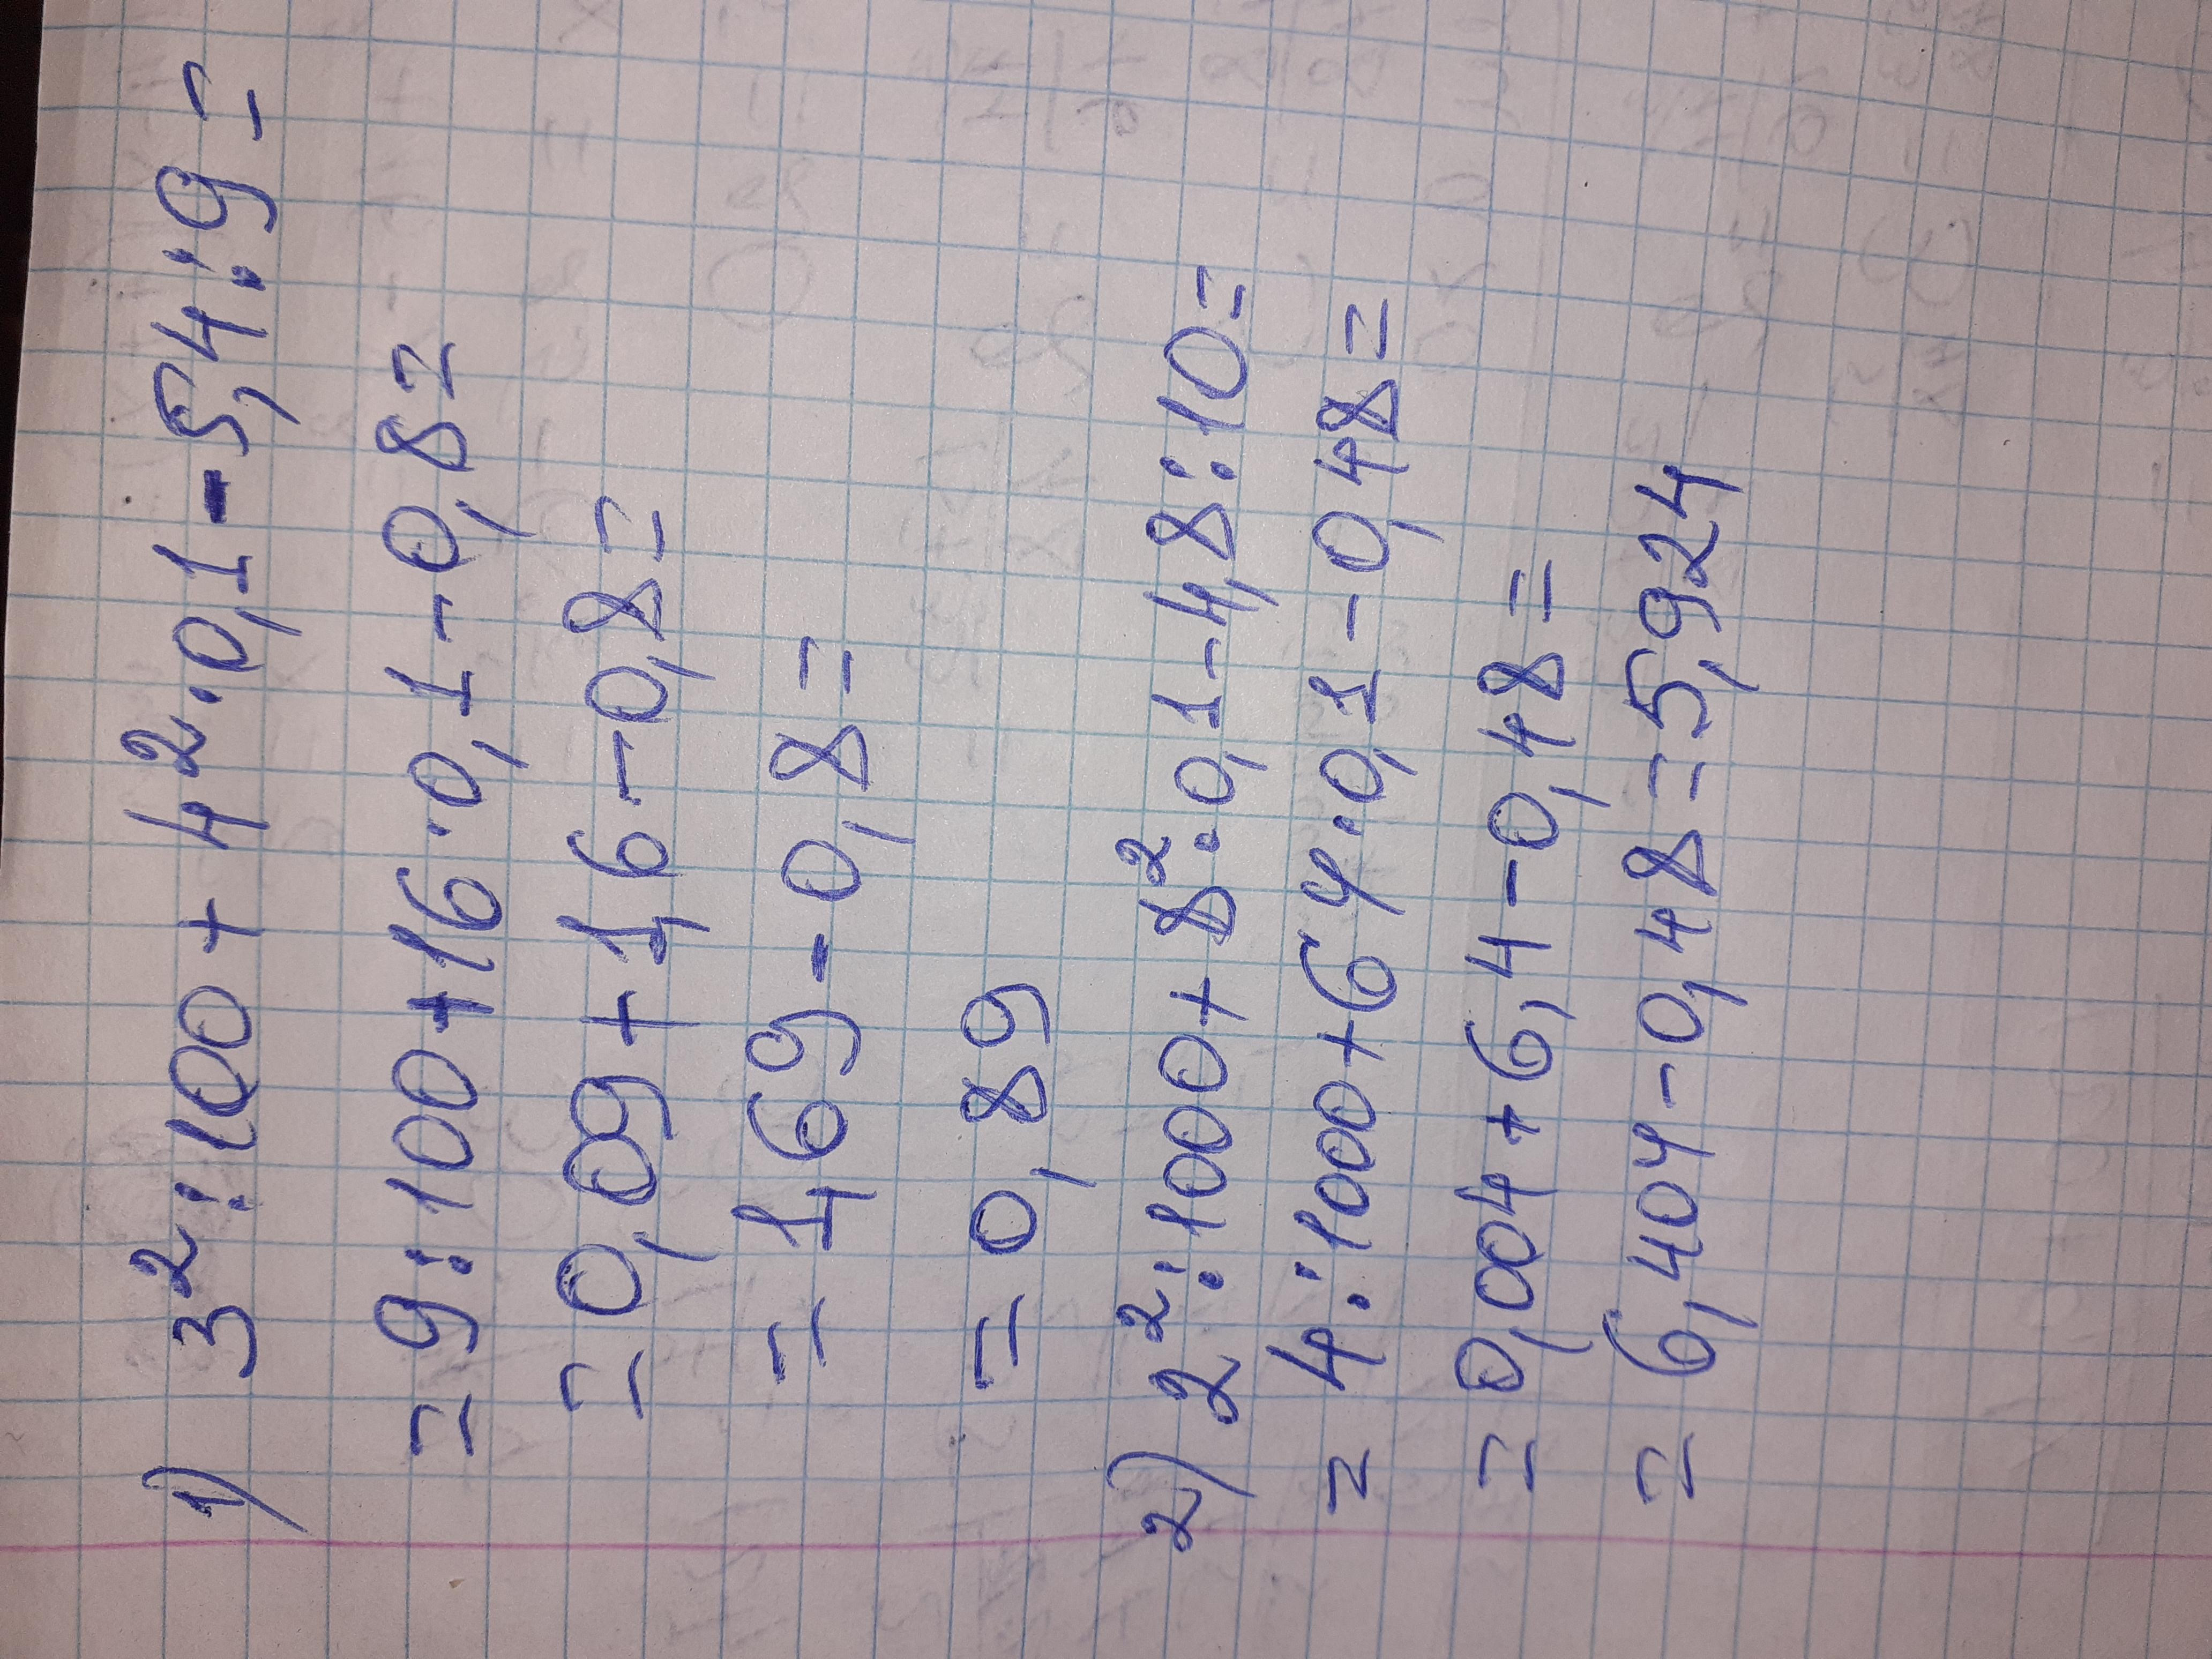 1) 3²:100 + 4²·0,1 - 5,4:9 =
= 9:100 + 16·0,1 - 0,8 =
= 0,09 + 1,6 - 0,8 =
= 1,69 - 0,8 =
= 0,89
2) 2²:1000 + 8²·0,1 - 4,8:10 =
= 4:1000 + 64·0,1 - 0,48 =
= 0,004 + 6,4 - 0,48 =
= 6,404 - 0,48 = 5,924